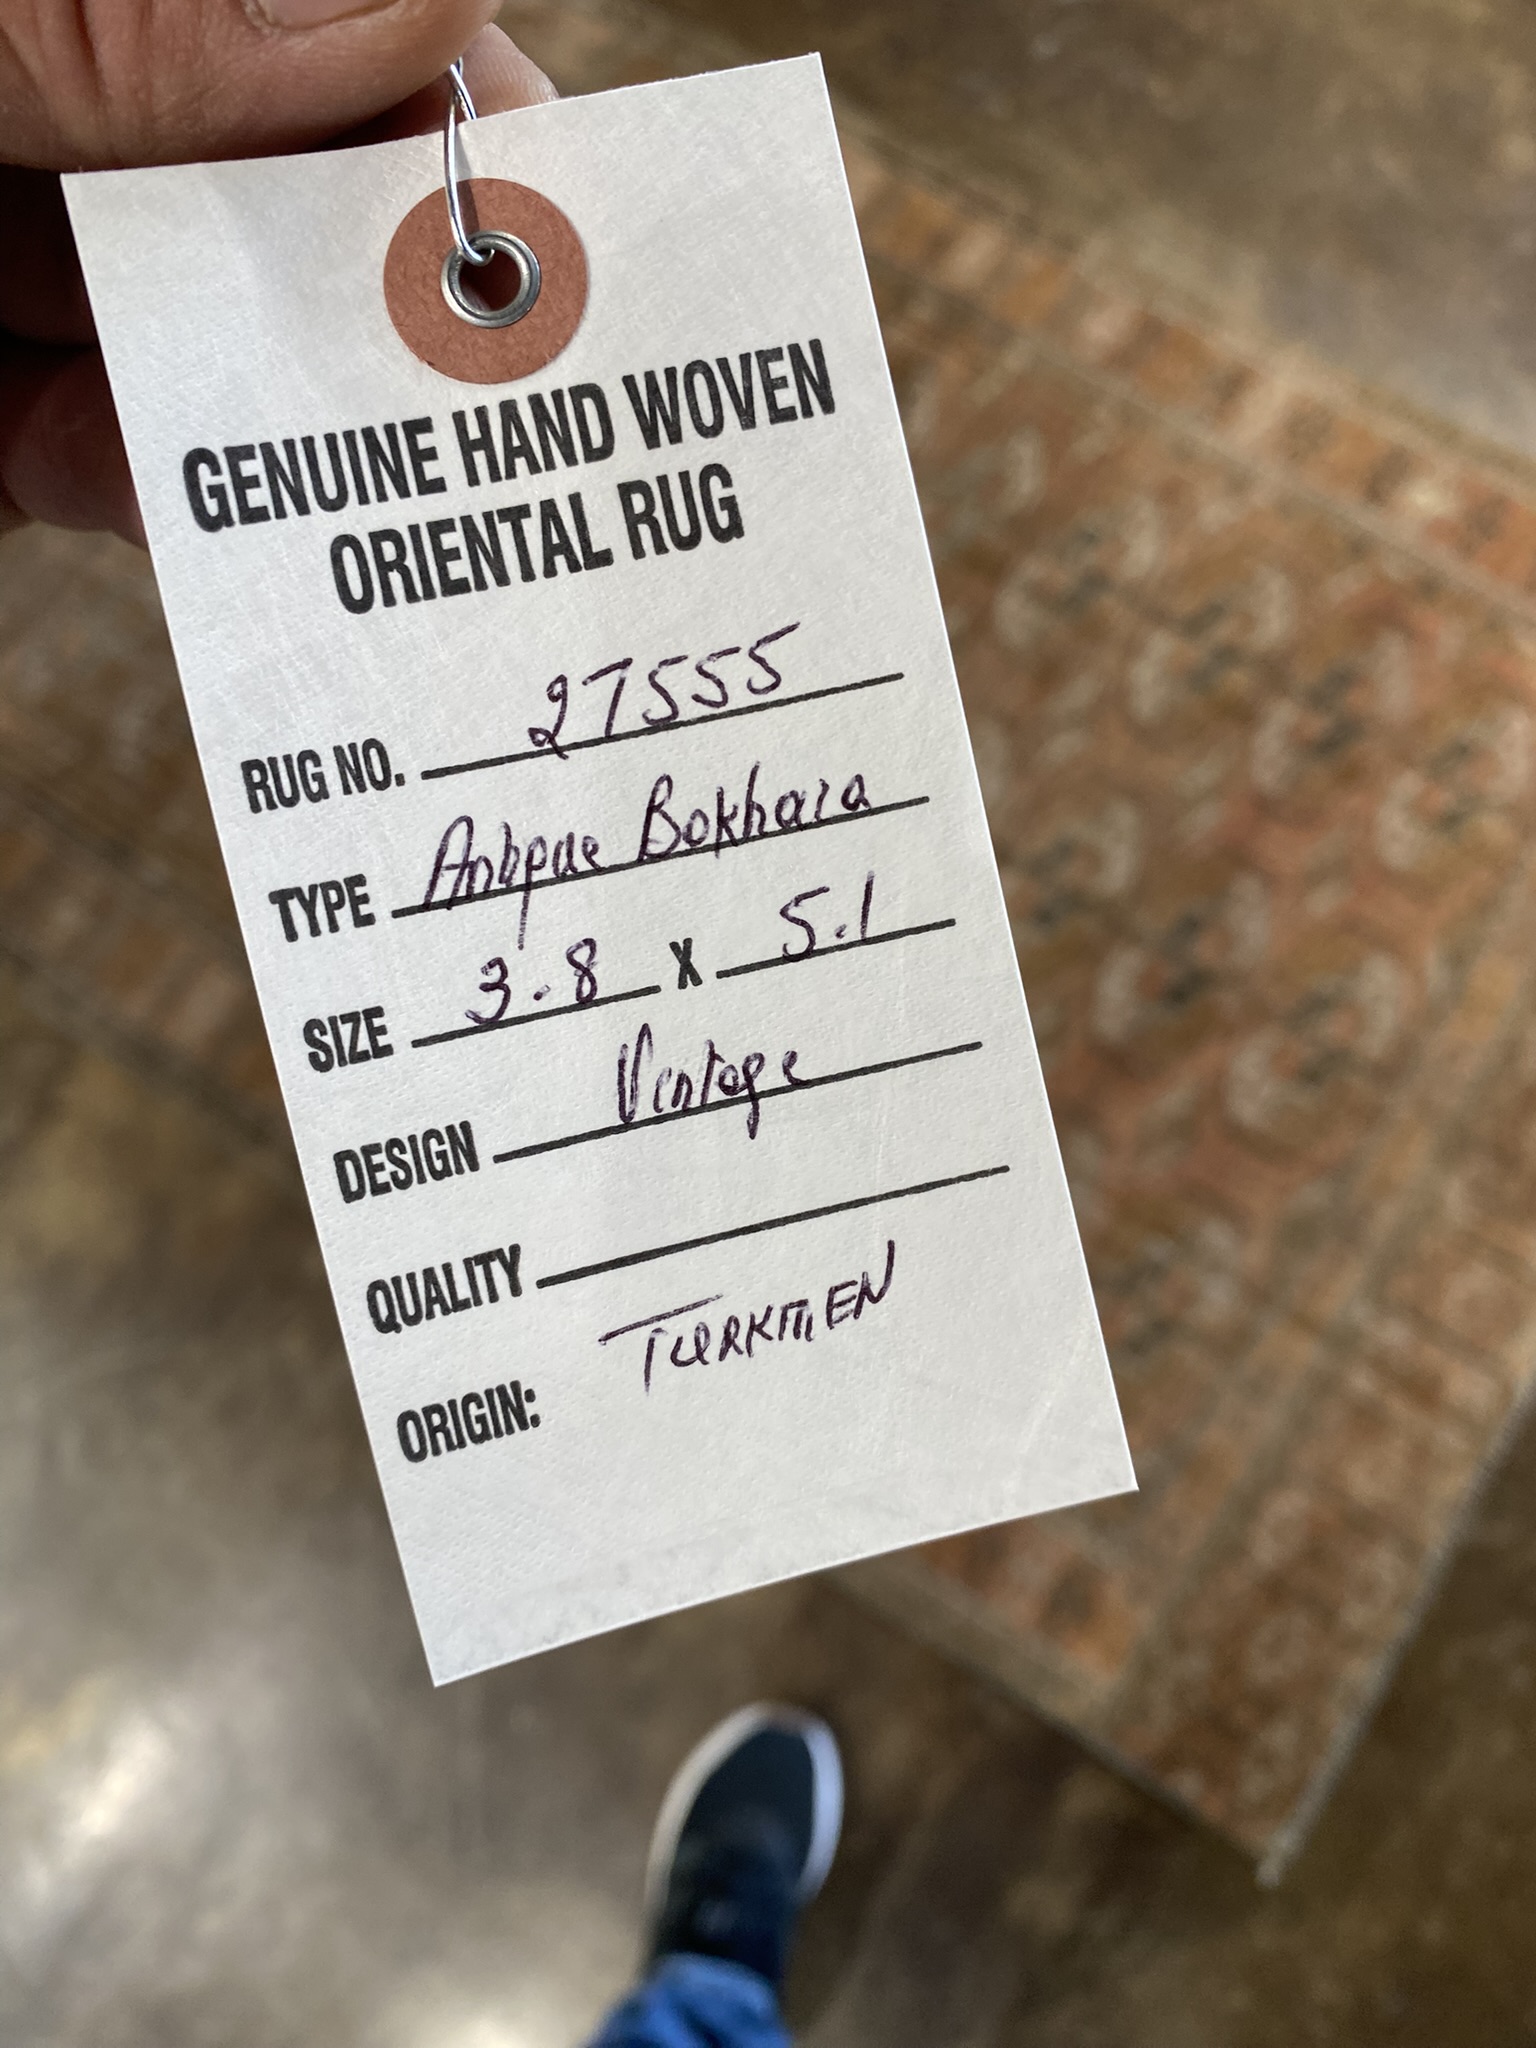 GENUINE HAND WOVEN
ORIENTAL RUG
RUG NO. 27555
TYPE Antique Bokhara
SIZE 3.8 X 5.1
DESIGN Vintage
QUALITY
ORIGIN: TURKMEN